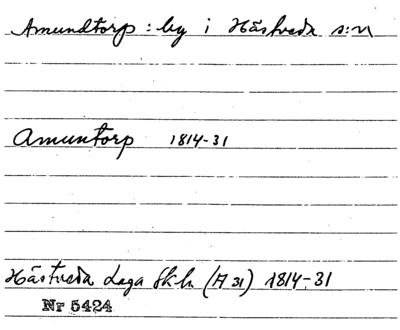 Amundtorp : by i Hästveda s:n
Amuntorp 1814-31
Hästveda Laga Sk h (A 31) 1814-31
Nr 5424